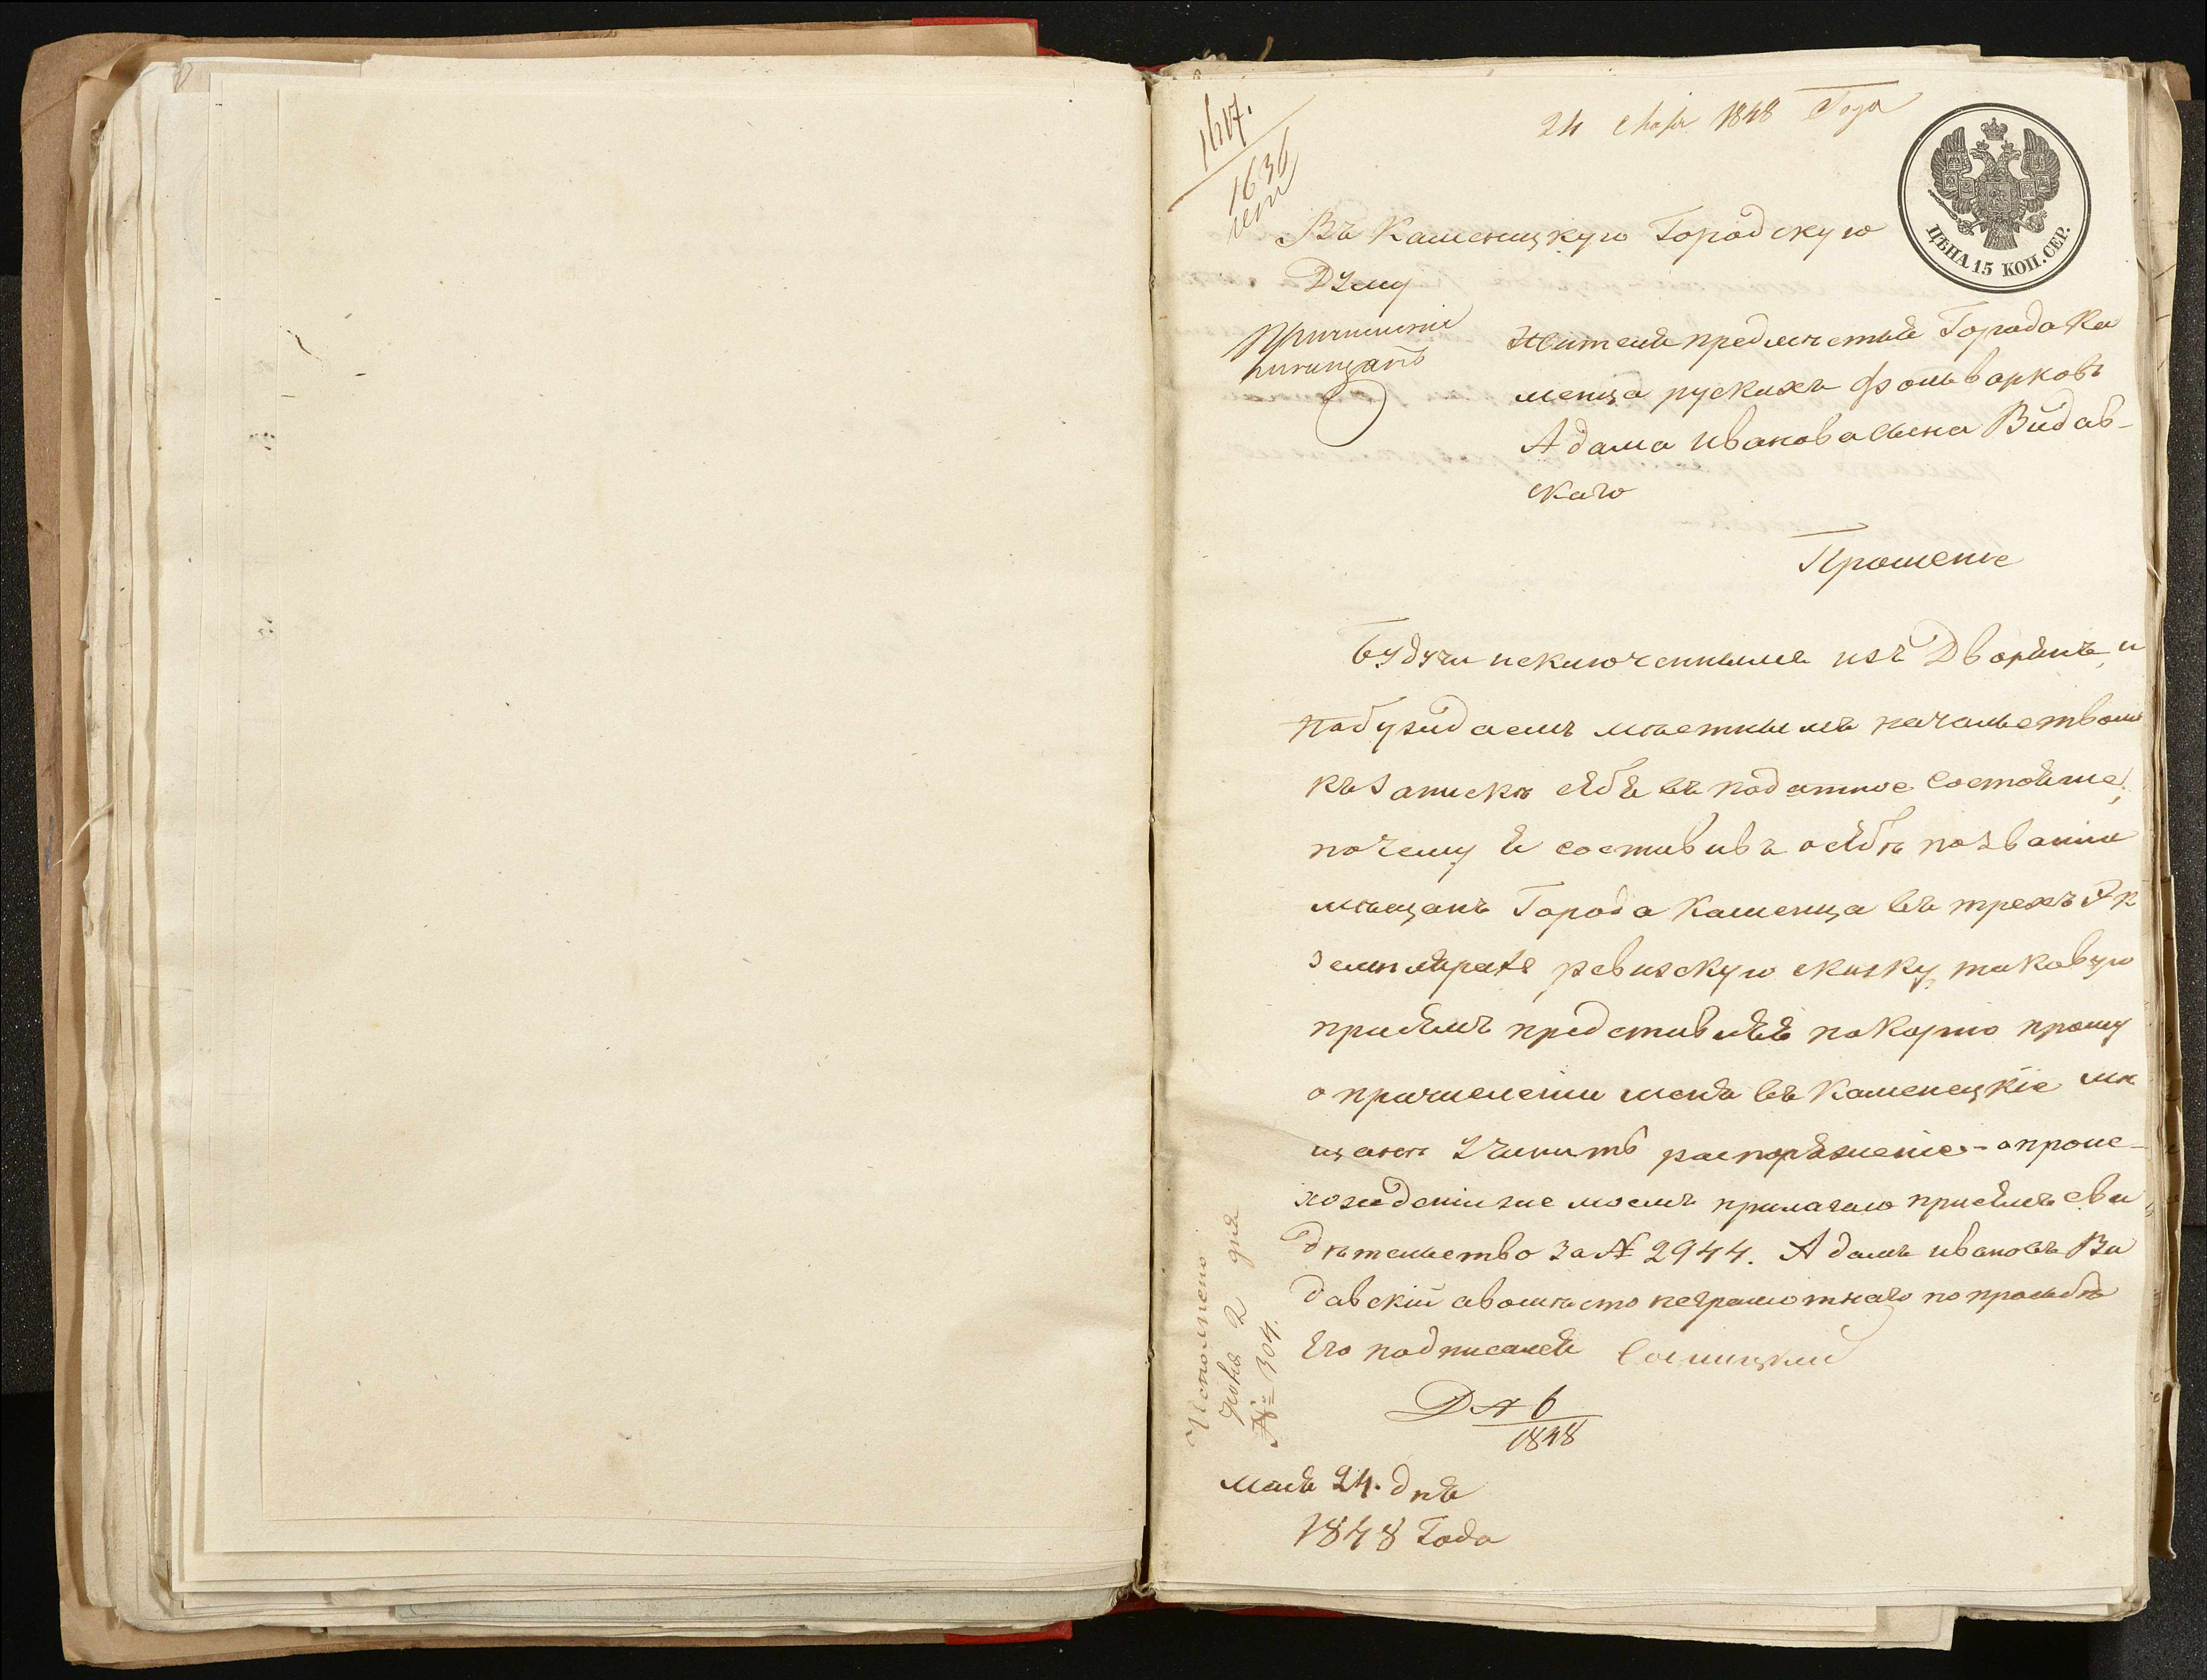 1617.
1636
24 1848 Года
ЦѢНА 15 КОП. СЕР.
Въ Каменицкую Городскую
Думу
Жителя предместья Города Ка
менца рускихъ фольварковъ
Адама Иванова сына Видав-
скаго
Прошеніе
Будучи исключеннымъ изъ Дворянъ, и
побуждаемъ местнымъ начальствомъ
къ записке себя въ податное состояніе,
почему я составивъ о себѣ по званію
мѣщанъ Города Каменца въ трехъ Эк
земплярахъ ревизскую скаску таковую
присемъ представляя покорно прошу
о причисленіи меня въ Каменецкіе мѣ
щане учинить распоряженіе - о проис-
хожденіи же моемъ прилагаю присемъ сви
дѣтельство за № 2944. Адамъ Ивановъ Ви
давскій а вомѣсто неграмотнаго по прозьбѣ
Его подписался
Д № 6
1848
Мая 24. дня
1848 Года
Исполнено
Іюня 2 дня
№ 304.